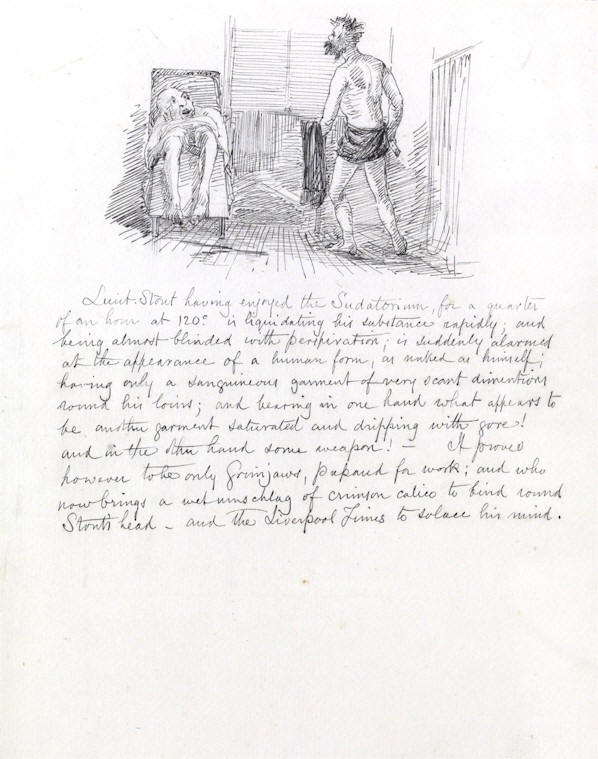 Lieut. Stout having enjoyed the Sudatorium, for a quarter
of an hour at 120° is liquidating his substance rapidly; and
being almost blinded with perspiration; is suddenly alarmed
at the appearance of a human form, as naked as himself;
having only a sanguineous garment of very scant dimentions
round his loins; and bearing in one hand what appears to
be another garment saturated and dripping with gore!
and in the other hand some weapon! — It proves
however to be only Grimjaws, prepared for work; and who
now brings a wet umschlag of crimson calico to bind round
Stout's head – and the Liverpool Times to solace his mind.